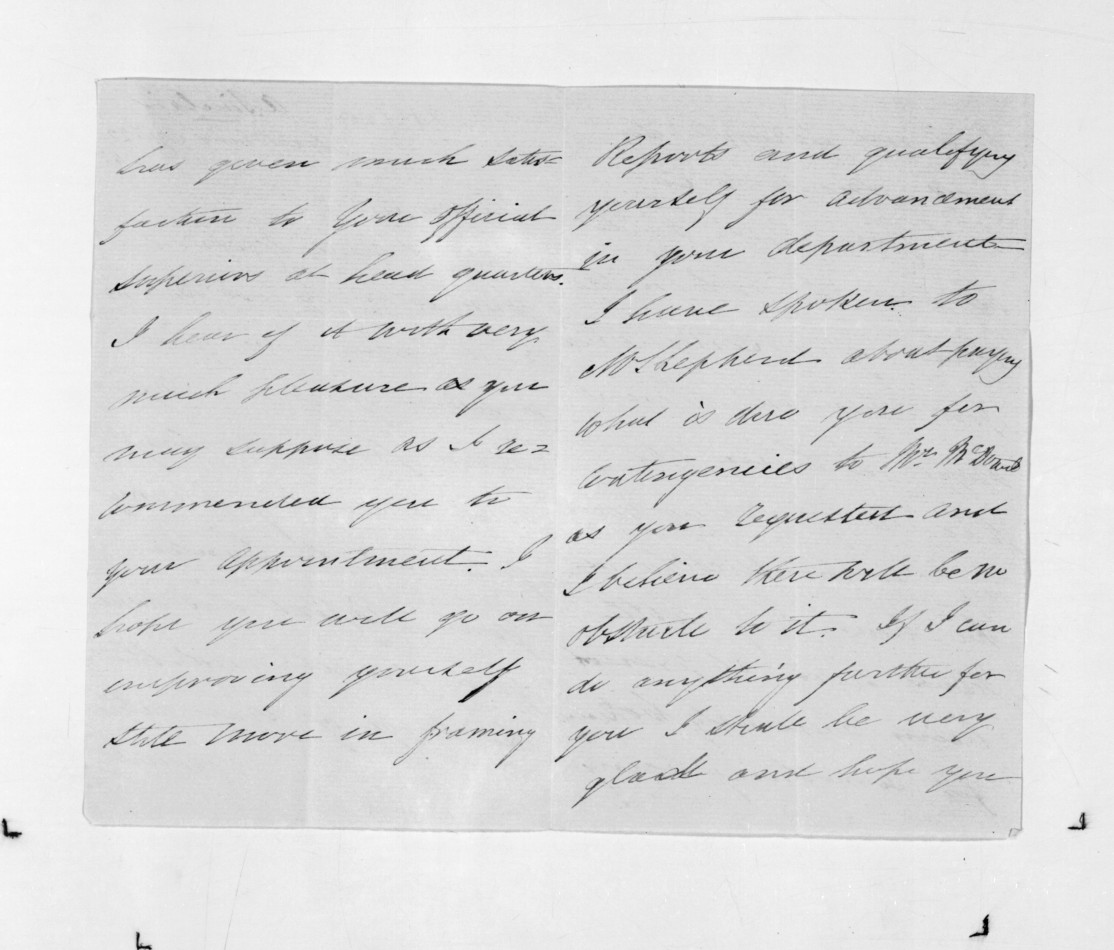 has given much satis=
faction to your official
superiors at head quarters.
I hear of it with very
much pleasure as you
may suppose as I re=
commended you to
your appointment. I
hope you will go on
improving yourself
still more in framing
Reports and qualifying
yourself for advancement
in your department
I have spoken to
Mr Shepherd about paying
what is due you for
Contingencies to Mr.
as you requested and
I believe there will be no
obstacle to it. If I can
do anything further for
you I shall be very
glad and hope you